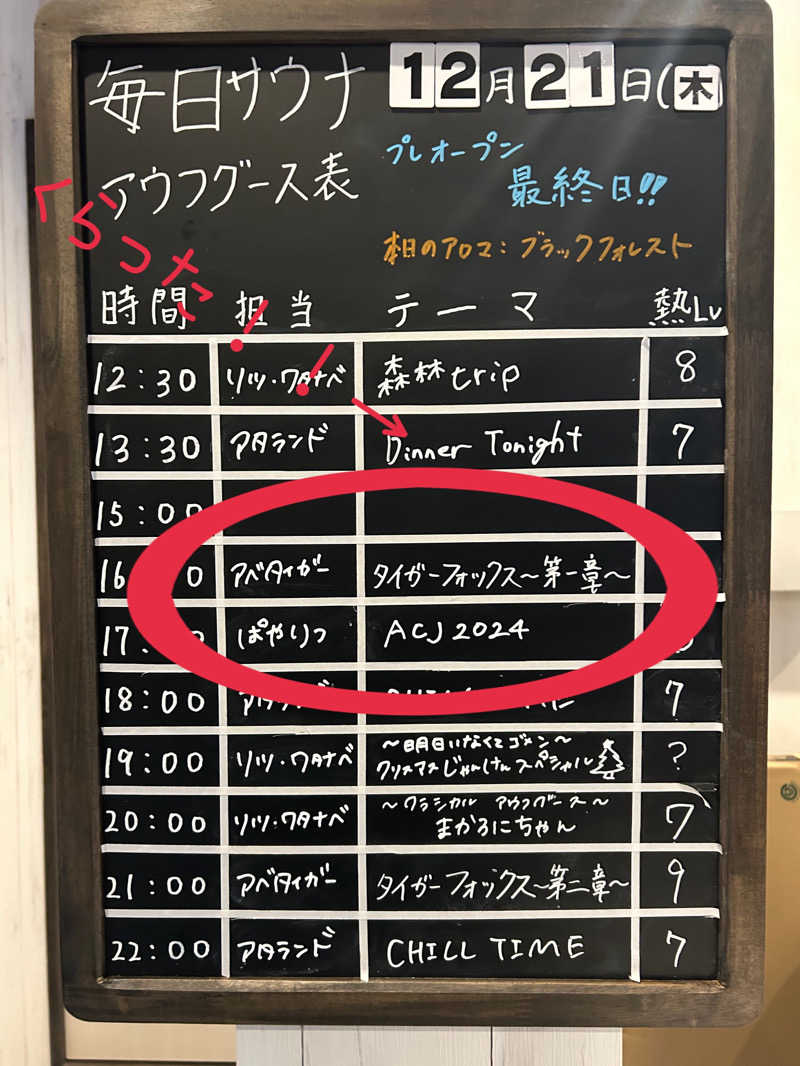 毎日サウナ 12月21日(木)
アウフグース表
プレオープン
最終日!!
本日のアロマ：ブラックフォレスト
時間 担当 テーマ 熱Lv
12:30 リツ・ワタナベ 森林trip 8
13:30 アタランド Dinner Tonight 7
15:00
アベタイガー タイガーフォックス〜第一章〜
ぱやりつ ACJ 2024
18:00 7
19:00 リツ・ワタナベ 〜明日いなくてゴメン〜 ?
クリスマスじゃんけんスペシャル
20:00 リツ・ワタナベ 〜クラシカル アウフグース〜 7
まかろにちゃん
21:00 アベタイガー タイガーフォックス〜第二章〜 9
22:00 アタランド CHILL TIME 7